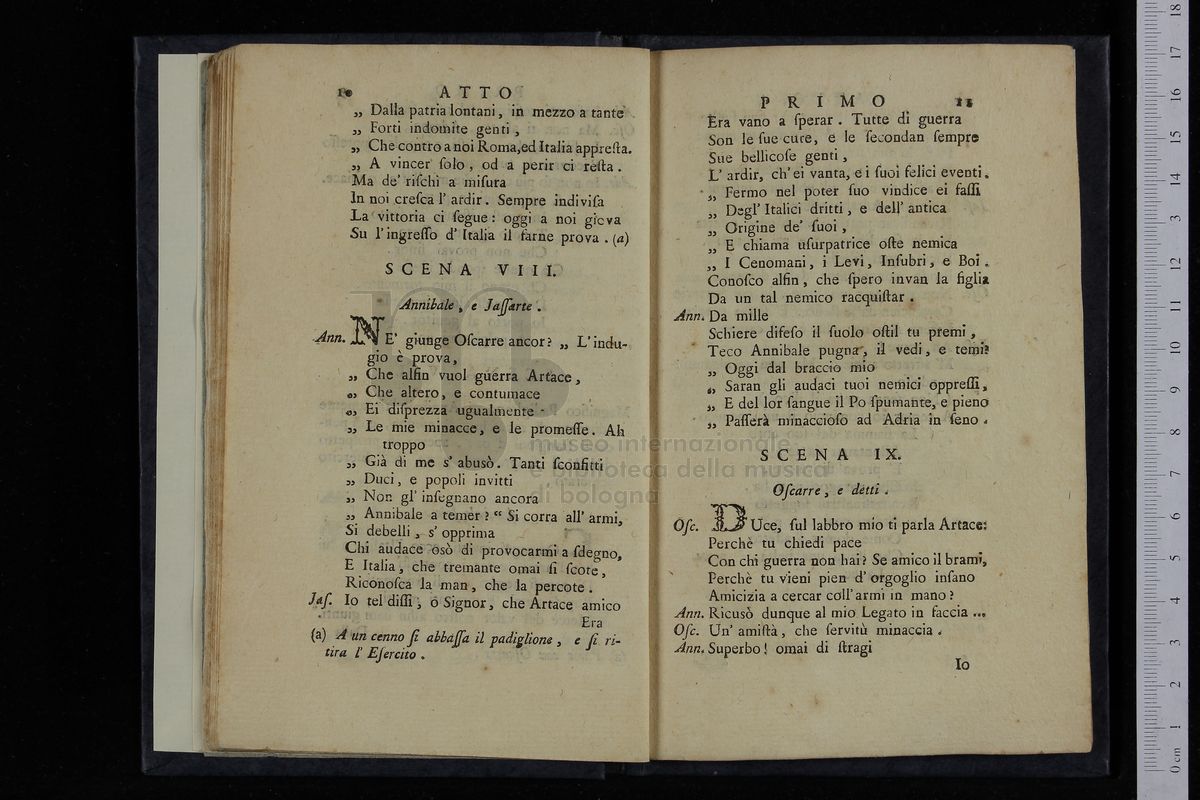 10 ATTO
„ Dalla patria lontani, in mezzo a tante
„ Forti indomite genti,
„ Che contro a noi Roma, ed Italia appreſta.
„ A vincer ſolo, od a perir ci reſta.
Ma de' riſchi a miſura
In noi creſca l' ardir. Sempre indiviſa
La vittoria ci ſegue: oggi a noi giova
Su l'ingreſſo d' Italia il farne prova. (a)
SCENA VIII.
Annibale, e Jaſſarte.
Ann. NE' giunge Oſcarre ancor? „ L'indu-
gio è prova,
„ Che alfin vuol guerra Artace,
„ Che altero, e contumace
„ Ei diſprezza ugualmente
„ Le mie minacce, e le promeſſe. Ah
troppo
„ Già di me s' abusò. Tanti ſconfitti
„ Duci, e popoli invitti
„ Non gl' inſegnano ancora
„ Annibale a temer? “ Si corra all' armi,
Si debelli, s' opprima
Chi audace osò di provocarmi a ſdegno,
E Italia, che tremante omai ſi ſcote,
Riconoſca la man, che la percote.
Jaſ. Io tel diſſi, ò Signor, che Artace amico
Era
(a) A un cenno ſi abbaſſa il padiglione, e ſi ri-
tira l' Eſercito.
PRIMO 11
Era vano a ſperar. Tutte di guerra
Son le ſue cure, e le ſecondan ſempre
Sue bellicoſe genti,
L' ardir, ch' ei vanta, e i ſuoi felici eventi.
„ Fermo nel poter ſuo vindice ei faſſi
„ Degl' Italici dritti, e dell' antica
„ Origine de' ſuoi,
„ E chiama uſurpatrice oſte nemica
„ I Cenomani, i Levi, Inſubri, e Boi.
Conoſco alfin, che ſpero invan la figlia
Da un tal nemico racquiſtar.
Ann. Da mille
Schiere difeſo il ſuolo oſtil tu premi,
Teco Annibale pugna, il vedi, e temi?
„ Oggi dal braccio mio
„ Saran gli audaci tuoi nemici oppreſſi,
„ E del lor ſangue il Po ſpumante, e pieno
„ Paſſerà minaccioſo ad Adria in ſeno.
SCENA IX.
Oſcarre, e detti.
Oſc. DUce, ſul labbro mio ti parla Artace:
Perchè tu chiedi pace
Con chi guerra non hai? Se amico il brami,
Perchè tu vieni pien d' orgoglio inſano
Amicizia a cercar coll' armi in mano?
Ann. Ricusò dunque al mio Legato in faccia ...
Oſc. Un' amiſtà, che ſervitù minaccia.
Ann. Superbo! omai di ſtragi
Io
museo internazionale
e biblioteca della musica
di bologna
0 cm 1 2 3 4 5 6 7 8 9 10 11 12 13 14 15 16 17 18